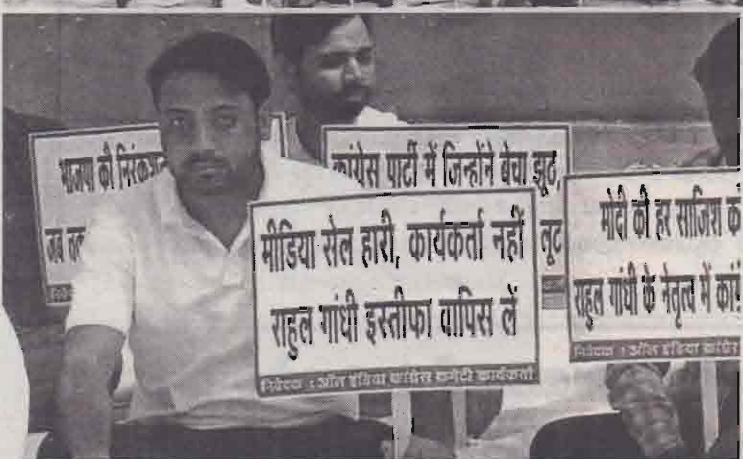 भाजपा की
जब तक
कांग्रेस पार्टी में जिन्होंने बेचा झूठ,
लूट
मीडिया सेल हारी, कार्यकर्ता नहीं
राहुल गांधी इस्तीफा वापिस लें
निवेदक : ऑल इंडिया कांग्रेस कमेटी कार्यकर्ता
मोदी की हर साजिश क
राहुल गांधी के नेतृत्व में कां
निवेदक : ऑल इंडिया कांग्रेस